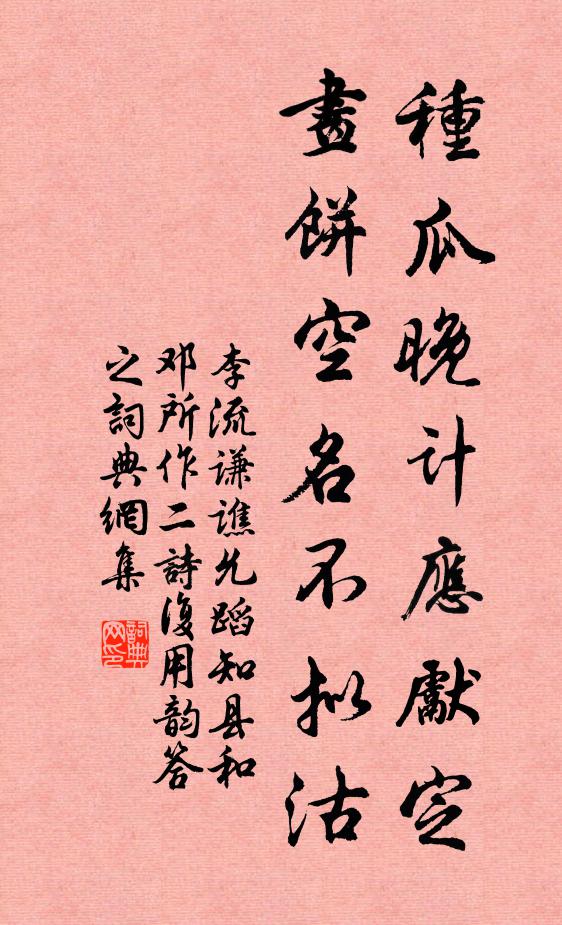 種瓜晚計應獻定
畫餅空名不拟沽
李流谦譙允蹈知县和
邓所作二詩復用韵答
之詞典網集
詞典
网印